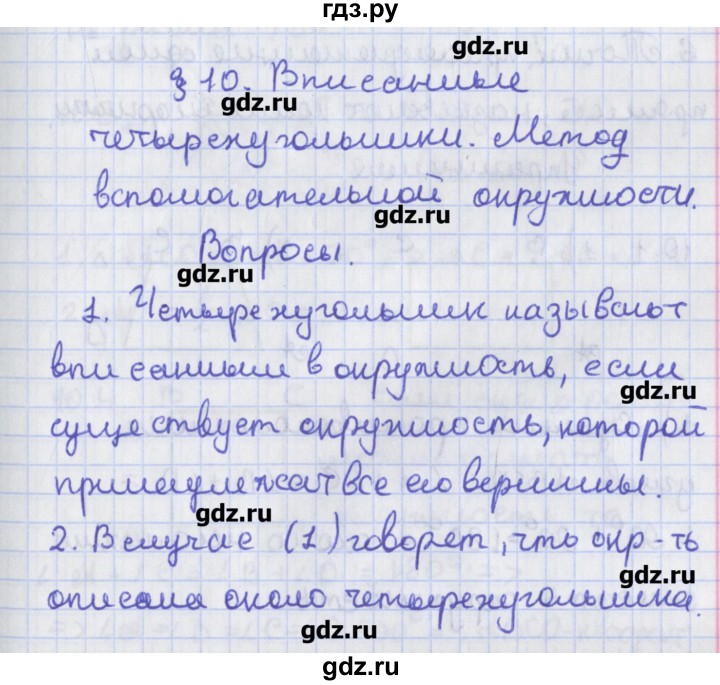 гдз.ру
gdz.ru
§ 10. Вписанные
gdz.ru
четырехугольники. Метод
вспомогательной окружности.
gdz.ru
Вопросы.
gdz.ru
1. Четырехугольник называют
вписанным в окружность, если
gdz.ru
существует окружность, которой
принадлежат все его вершины.
gdz.ru
2. В случае (1) говорят, что окр-ть
gdz.ru
описана около четырехугольника.
gdz.ru
gdz.ru